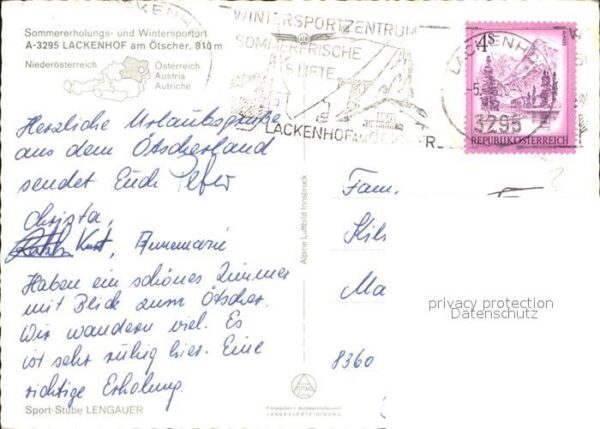 Sommererholungs- und Wintersportort
A-3295 LACKENHOF am Ötscher, 810 m
Niederösterreich
Österreich
Austria
Autriche
WINTERSPORTZENTRUM
SOMMERFRISCHE
5 LIFTE
LACKENHOF AM ÖTSCHER
LACKENHOF
3295
4 S
REPUBLIK ÖSTERREICH
Herzliche Urlaubsgrüße
aus dem Ötscherland
sendet Euch Peter
Christa,
Kurt, Annemarie
Haben ein schönes Zimmer
mit Blick zum Ötscher.
Wir wandern viel. Es
ist sehr ruhig hier. Eine
richtige Erholung.
Sport-Stube LENGAUER
Alpine Luftbild Innsbruck
Fam.
Kils
Ma
8360
privacy protection
Datenschutz
LANDESVERTEIDIGUNG